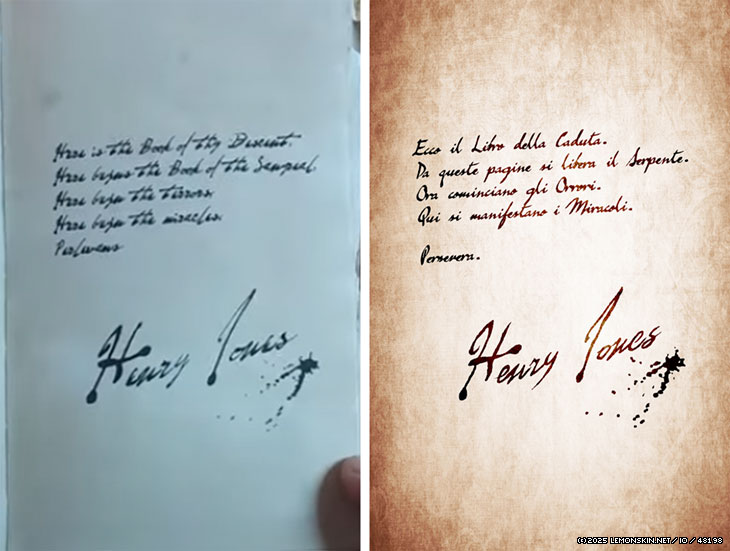 Here is the Book of thy Descent.
Here begins the Book of the Sangreal.
Here begin the terrors.
Here begin the miracles.
Perlesvaus
Henry Jones
Ecco il Libro della Caduta.
Da queste pagine si libera il Serpente.
Ora cominciano gli Orrori.
Qui si manifestano i Miracoli.
Persevera.
Henry Jones
(C) 2025 LEMONSKIN.NET / IO / 48198